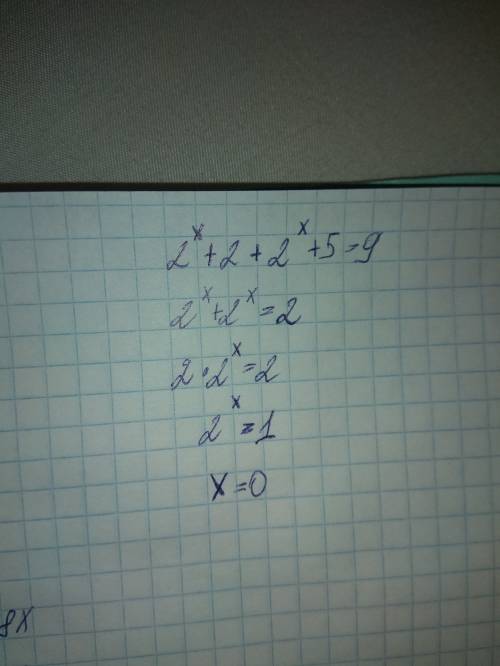 2^x + 2 + 2^x + 5 = 9
2^x + 2^x = 2
2 · 2^x = 2
2^x = 1
x = 0
8x